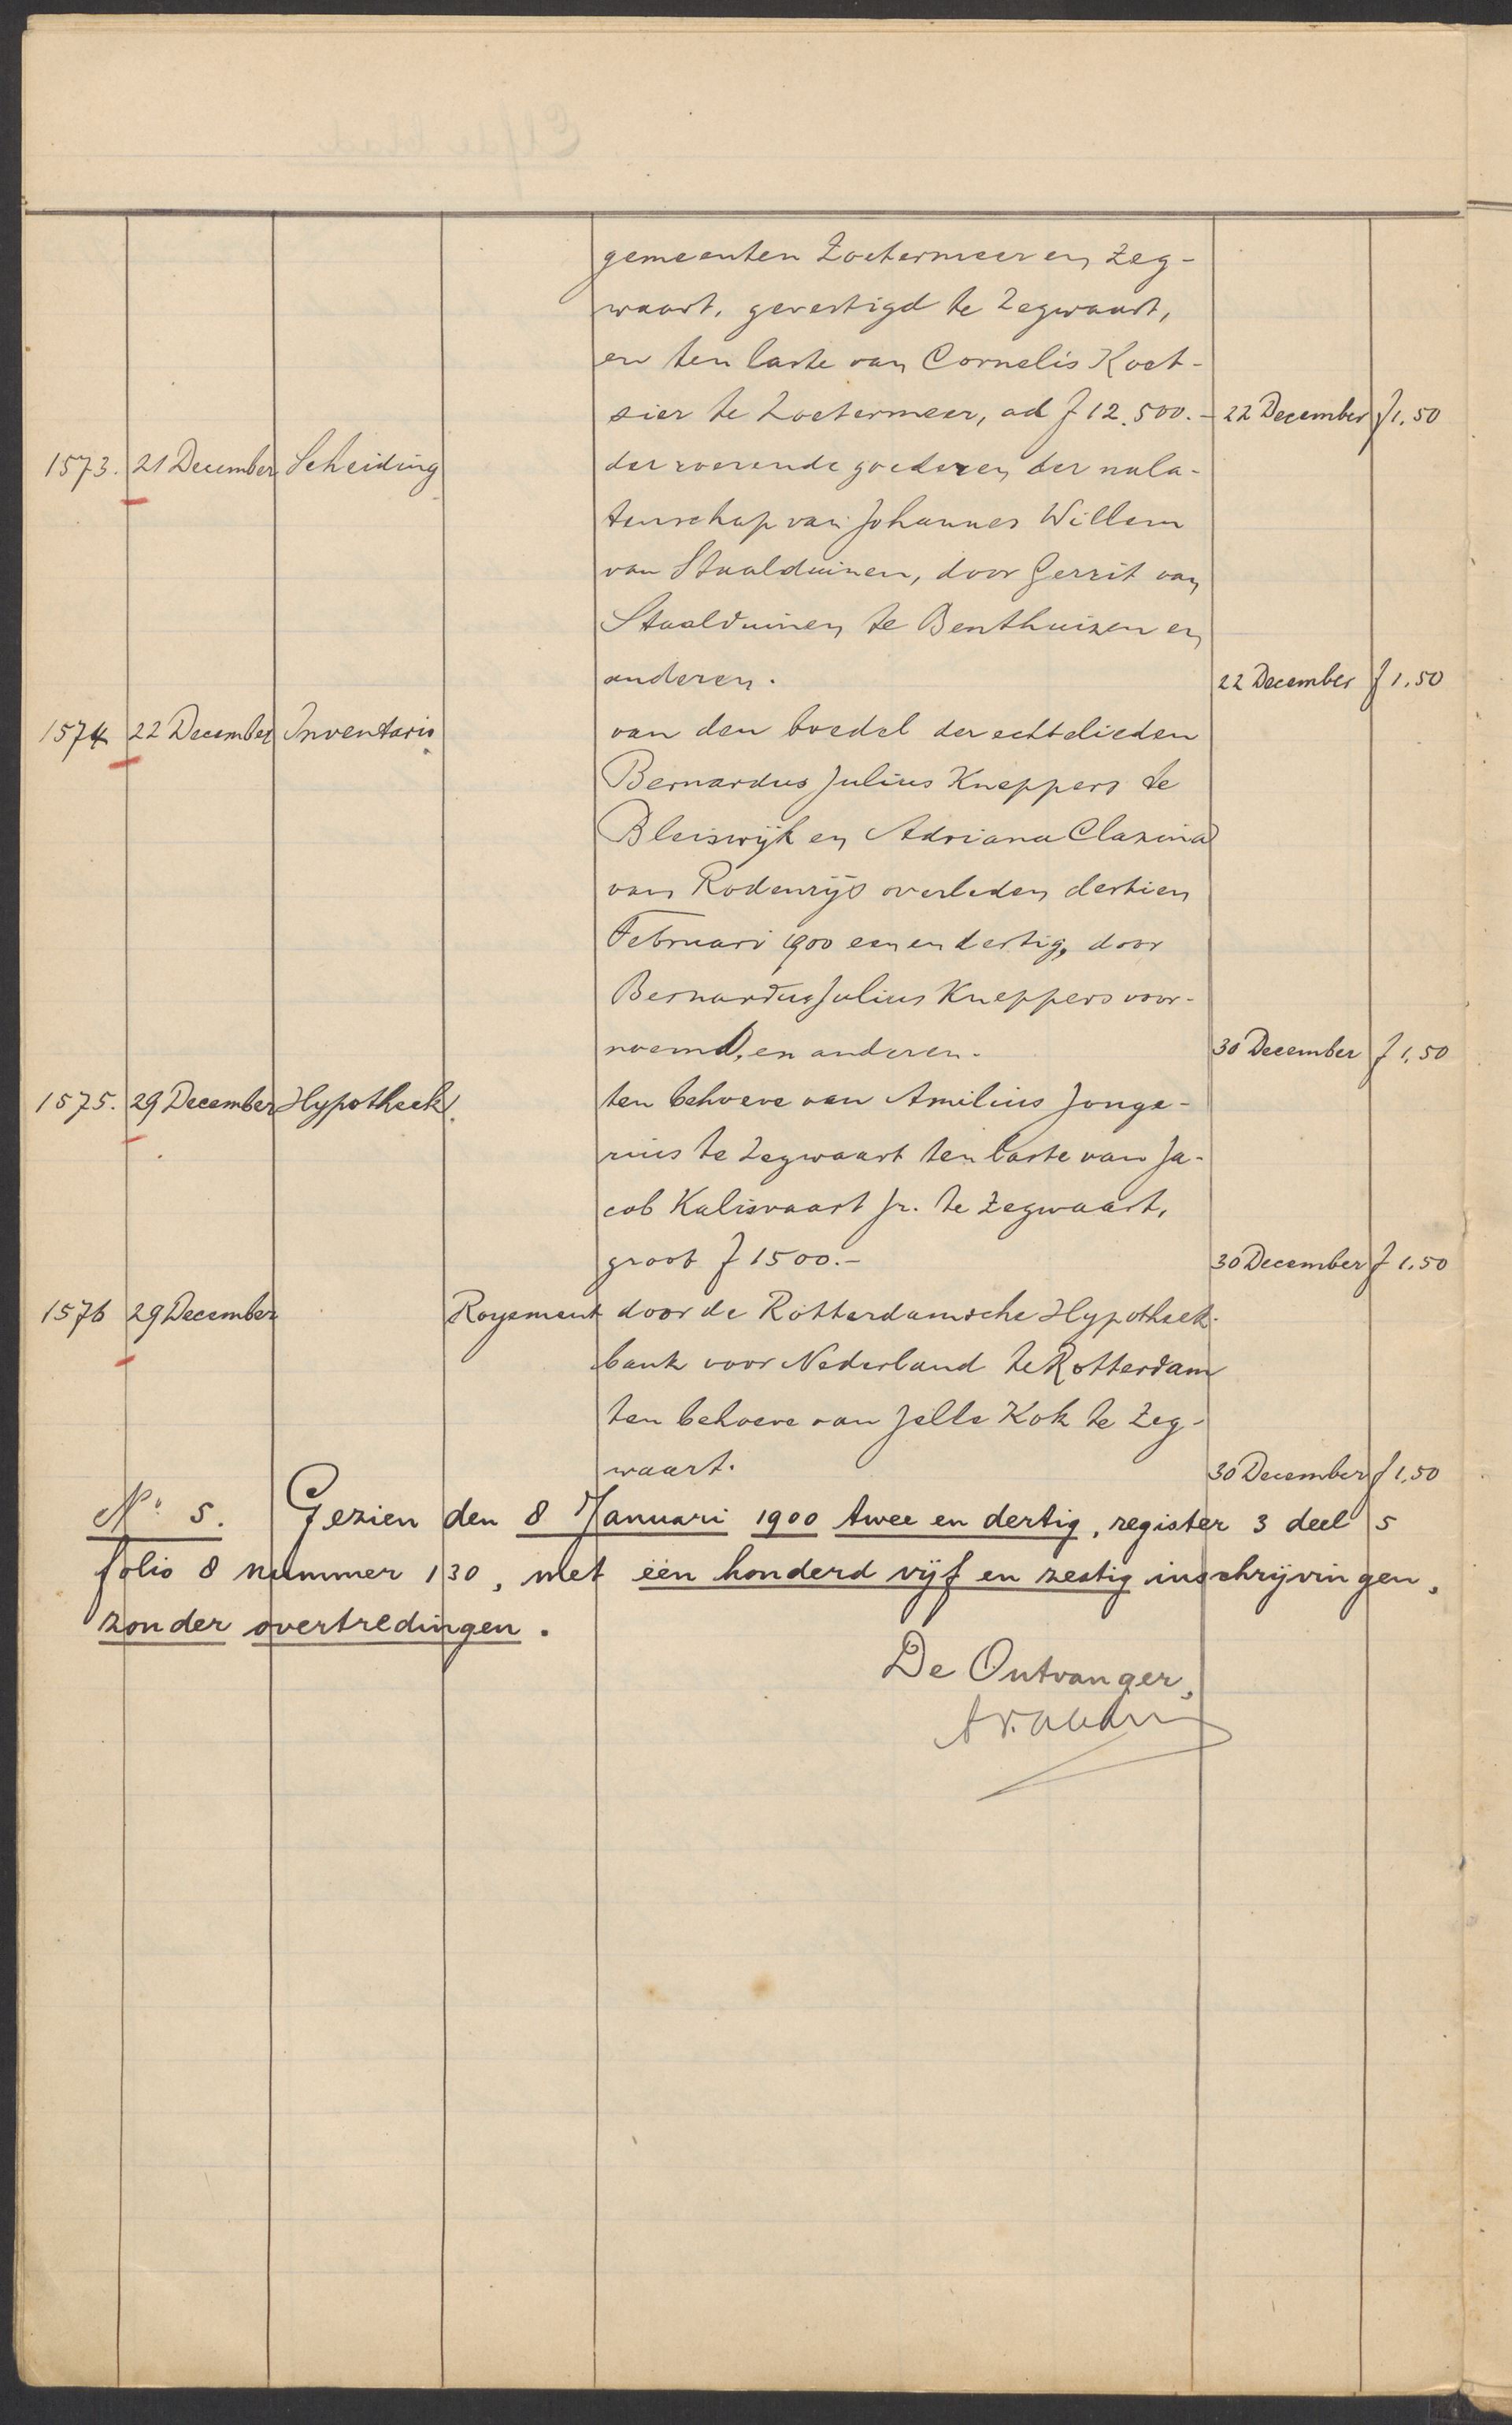 gemeenten Zoetermeer en Zeg-
waart, gevestigd te Zegwaart,
en ten laste van Cornelis Koet-
sier te Zoetermeer, ad f 12.500.- 22 December f 1.50
1573. 21 December Scheiding der roerende goederen der nala-
tenschap van Johannes Willem
van Staalduinen, door Gerrit van
Staalduinen te Benthuizen en
anderen. 22 December f 1.50
1574 22 December Inventaris van den boedel der echtelieden
Bernardus Julius Kneppers te
Bleiswijk en Adriana Clazina
van Rodenrijs overleden dertien
Februari 1900 een en dertig, door
Bernardus Julius Kneppers voor-
noemd, en anderen. 30 December f 1.50
1575. 29 December Hypotheek ten behoeve van Amilius Jonge-
rius te Zegwaart ten laste van Ja-
cob Kalisvaart Jr. te Zegwaart,
groot f 1500.- 30 December f 1.50
1576 29 December Royement door de Rotterdamsche Hypotheek-
bank voor Nederland te Rotterdam
ten behoeve van Jelle Kok te Zeg-
waart. 30 December f 1.50
No 5. Gezien den 8 Januari 1900 twee en dertig, register 3 deel 5
folio 8 nummer 130, met één honderd vijf en zestig inschrijvingen,
zonder overtredingen.
De Ontvanger,